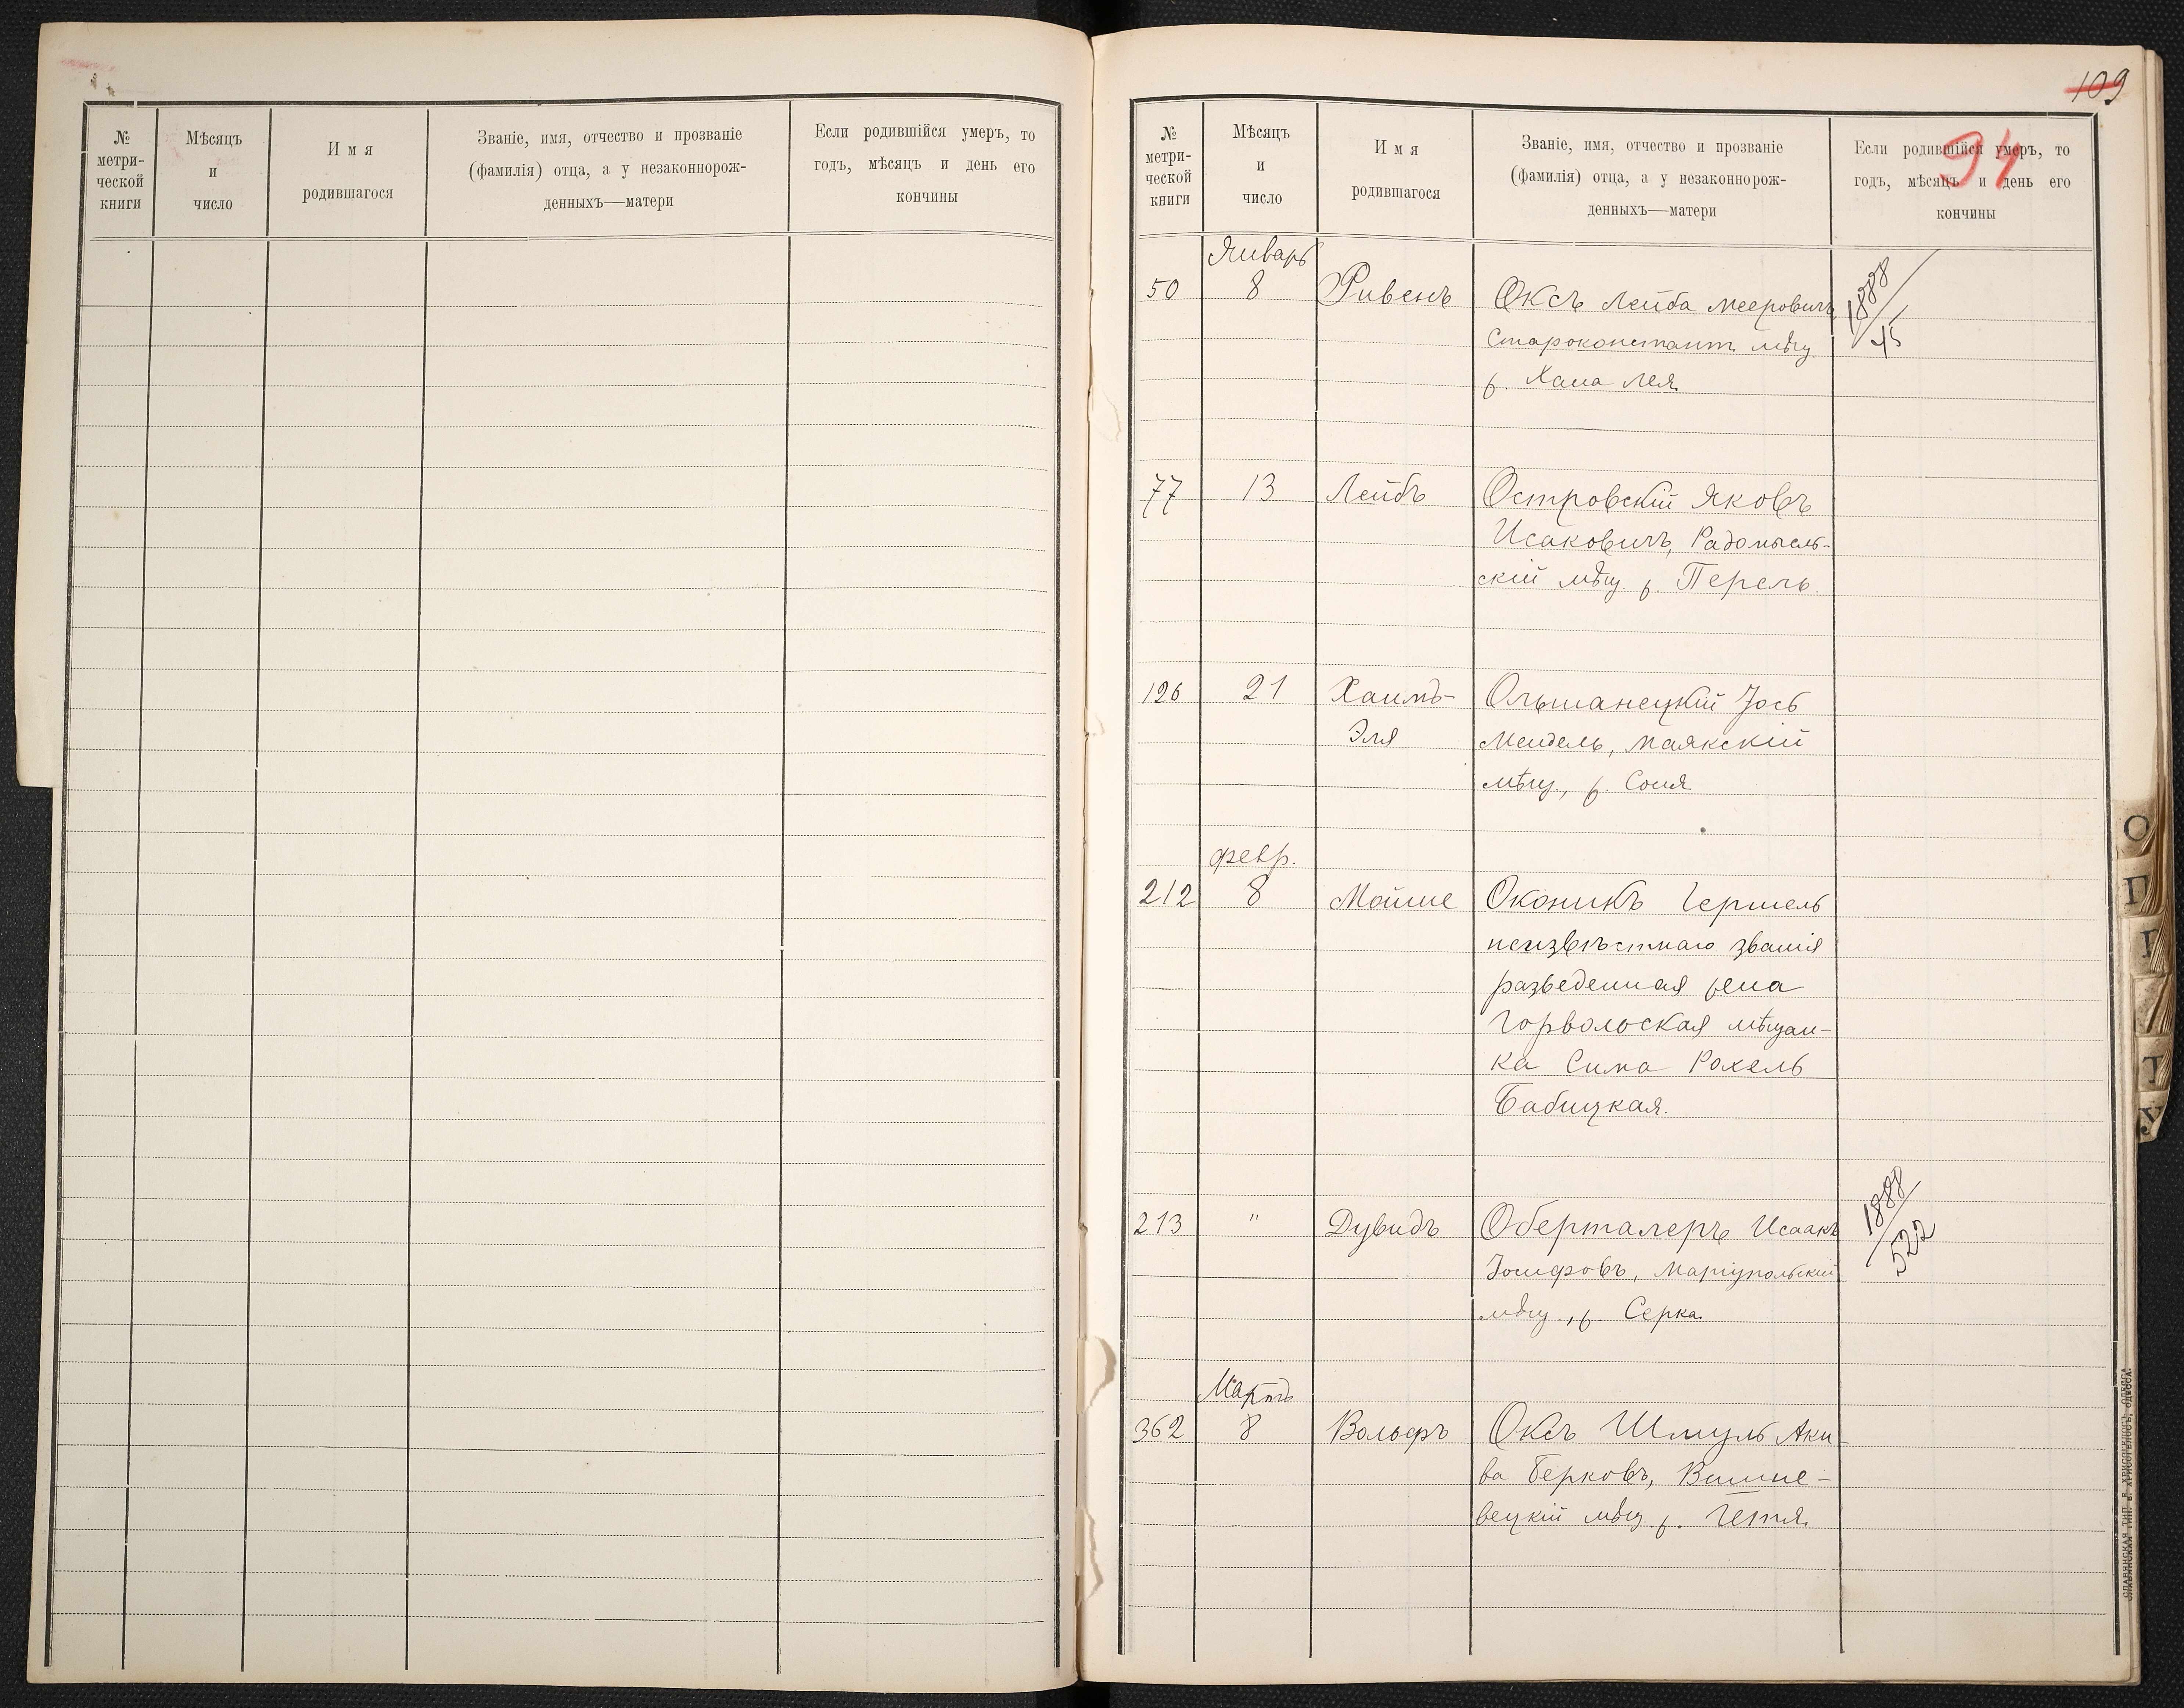 №
метри-
ческой
книги
Мѣсяцъ
и
число
Имя
родившагося
Званіе, имя, отчество и прозваніе
(фамилія) отца, а у незаконнорож-
денныхъ—матери
Если родившійся умеръ, то
годъ, мѣсяцъ и день его
кончины
109
94
№
метри-
ческой
книги
Мѣсяцъ
и
число
Имя
родившагося
Званіе, имя, отчество и прозваніе
(фамилія) отца, а у незаконнорож-
денныхъ—матери
Если родившійся умеръ, то
годъ, мѣсяцъ и день его
кончины
Январь
50 8 Ривенъ Оксъ Лейба Мееровичъ 1888/45
Староконстант. мѣщ
ж. Хана Лея
77 13 Лейбъ Островскій Яковъ
Исаковичъ, Радомысль-
скій мѣщ. ж. Перель.
126 21 Хаимъ- Ольшанецкій Іось
Эля Мендель, Маякскій
мѣщ., ж. Соня
февр.
212 8 Мойше Оконикъ Гершель
неизвѣстнаго званія
разведенная жена
Горвольская мѣщан-
ка Сима Рохель
Бабицкая.
213 " Дувидъ Оберталеръ Исаакъ 1888/522
Іосифовъ, Маріупольскій
мѣщ., ж. Серка
Мартъ
362 8 Вольфъ Оксъ Шмуль Аки-
ва Берковъ, Вишне-
вецкій мѣщ. ж. Гетя
О
П
Т
У
СЛАВЯНСКАЯ ТИП. Е. ХРИСОГЕЛОСЪ, ОДЕССА.